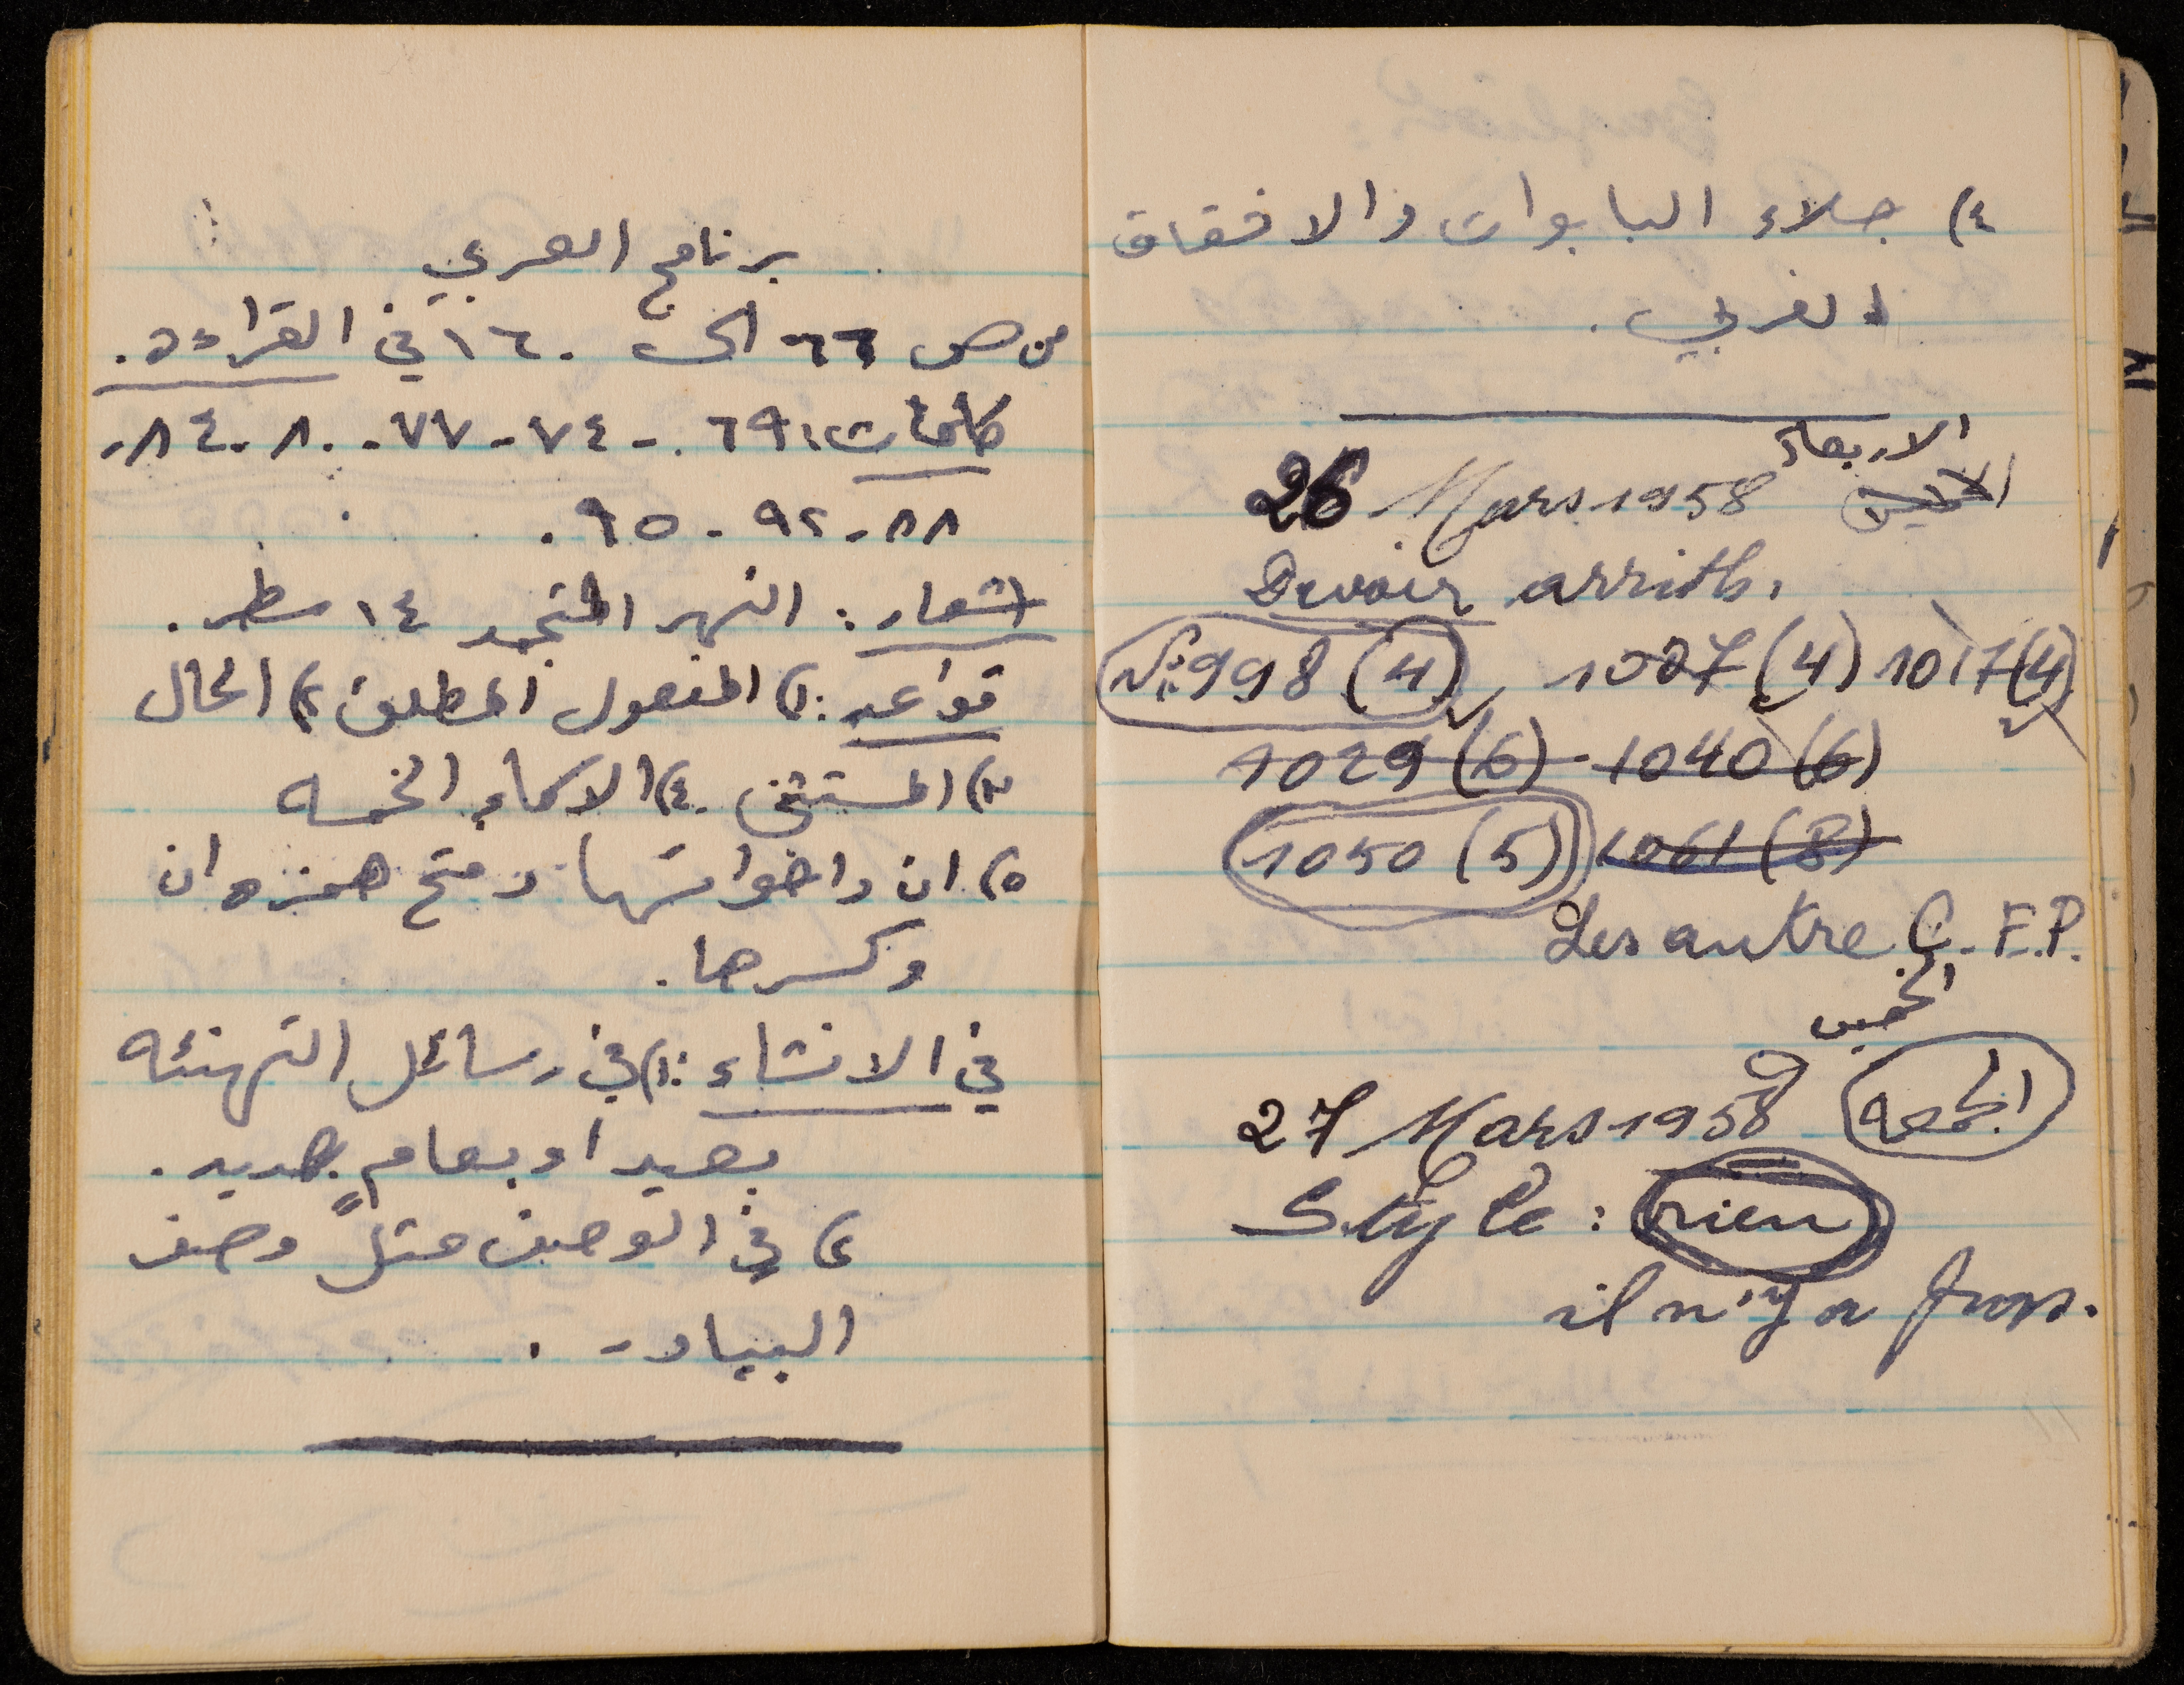 برنامج العربي
من ص ٦٦ الى ١٦٠ في القراءه.
كلمات: ٦٩ - ٧٤ - ٧٧ - ٨٠ - ٨٤ -
٨٨ - ٩٢ - ٩٥ .
اشعار: النهر المتجمد ١٤ سطر.
قواعد: ١) المفعول المطلق ٢) الحال
٣) المستثنى. ٤) الاسماء الخمسه
٥) ان واخواتها وفتح همزه ان
وكسرها.
في الانشاء: ١) في رسائل التهنئه
بعيد او بعام جديد.
٢) في الوصف مثلً وصف
البيادر .
٤) جلاء البابوات والانشقاق
الغربي .
الاربعاء
26 Mars 1958 الخميس
Devoir arrith.
N: 998 (4) 1027 (4) 1017 (4)
1029 (6) - 1040 (6)
1050 (5) 1061 (8)
Les autre C. F.P.
الخميس
27 Mars 1958 الجمعه
Style : rien
il n'y a pas.